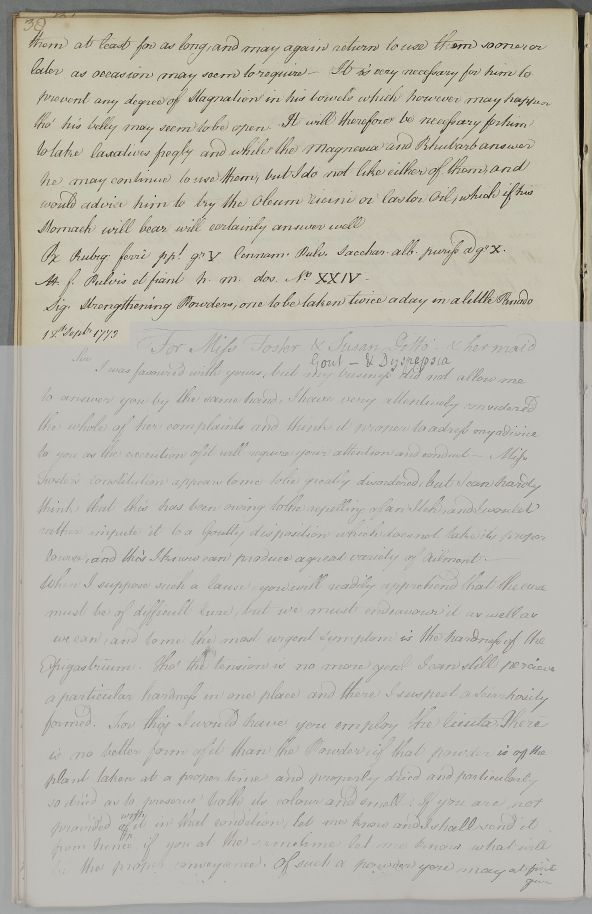 38
them at least for as long, and may again return to use them sooner or
later as occasion may seem to require — It is very necessary for him to
prevent any degree of Stagnation in his bowels which however may happen
tho' his belly may seem to be open. It will therefore be necessary for him
to take laxatives freqly and while the Magnesia and Rhubarb answer
he may continue to use them, but I do not like either of them, and
would advise him to try the Oleum Ricini or Castor Oil, which if his
Stomach will bear will certainly answer well
Rx Rubig. ferri ppt. gr V Cinnam. Pulv. Sacchar. alb. puriss a gr X.
M. f. Pulvis et fiant h. m. dos. No XXIV —
Sig. Strengthening Powders, one to be taken twice a day in a little Panado
12th Septr 1773
For Miss Foster & Susan her maid
Gout — & Dyspepsia
Sir
I was favoured with yours, but my business did not allow me
to answer you by the same hand, I have very attentively considered
the whole of her complaints and think it proper to adress my advice
to you as the execution of it will require your attention and conduct — Miss
Foster's constitution appears to me to be greatly disordered, but I can hardly
think that this has been owing to the repelling of an Itch, and I would
rather impute it to a Goutly disposition which does not take its proper
course, and this I know can produce a great variety of Ailment —
When I suppose such a cause, you will readily apprehend that the case
must be of difficult Cure, but we must endeavour it as well as
we can, and to me the most urgent Symptom is the hardness of the
Epigastrium. Tho' the tension is no more gen'l I can still perceive
a particular hardness in one place and there I suspect a Scirrhosity
formed. For this I would have you employ the Cicuta. There
is no better form of it than the Powder, if that powder is of the
plant taken at a proper time and properly dried and particularly
so dried as to preserve both its colour and smell: If you are not
provided with it in that condition, let me know and I shall send it
from hence, if you at the same time let me know what will
be the proper conveyance. Of such a powder you may at first
give